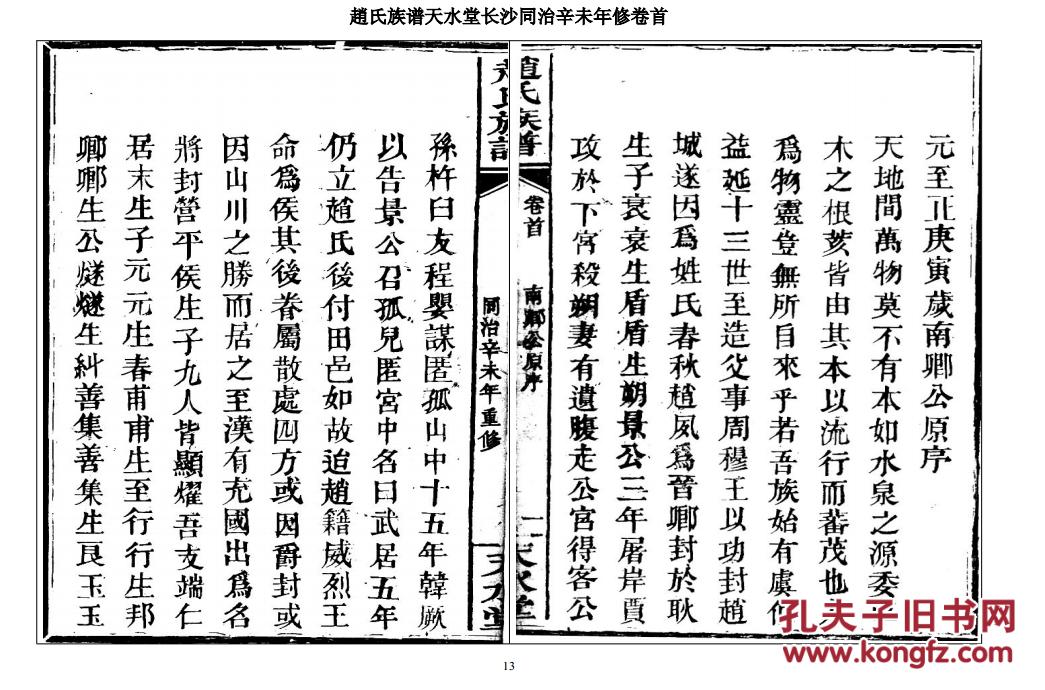 趙氏族谱天水堂长沙同治辛未年修卷首
元至正庚寅歲南卿公原序
天地間萬物莫不有本如水泉之源委
木之根荄皆由其本以流行而蕃茂也
爲物靈豈無所自來乎若吾族始有虞
益延十三世至造父事周穆王以功封趙
城遂因爲姓氏春秋趙夙爲晉卿封於耿
生子衰衰生盾盾生朔景公三年屠岸賈
攻於下宮殺朔妻有遺腹走公宮得客公
趙氏族譜
卷首
南卿公原序
天水堂
趙氏族譜
同治辛未年重修
天水堂
孫杵臼友程嬰謀匿孤山中十五年韓厥
以告景公召孤兒匿宮中名曰武居五年
仍立趙氏後付田邑如故迨趙籍威烈王
命爲侯其後眷屬散處四方或因爵封或
因山川之勝而居之至漢有充國出爲名
將封營平侯生子九人皆顯燿吾支端仁
居末生子元元生春甫甫生至行行生邦
卿卿生公燧燧生糾善集善集生艮玉玉
孔夫子旧书网
www.kongfz.com
13